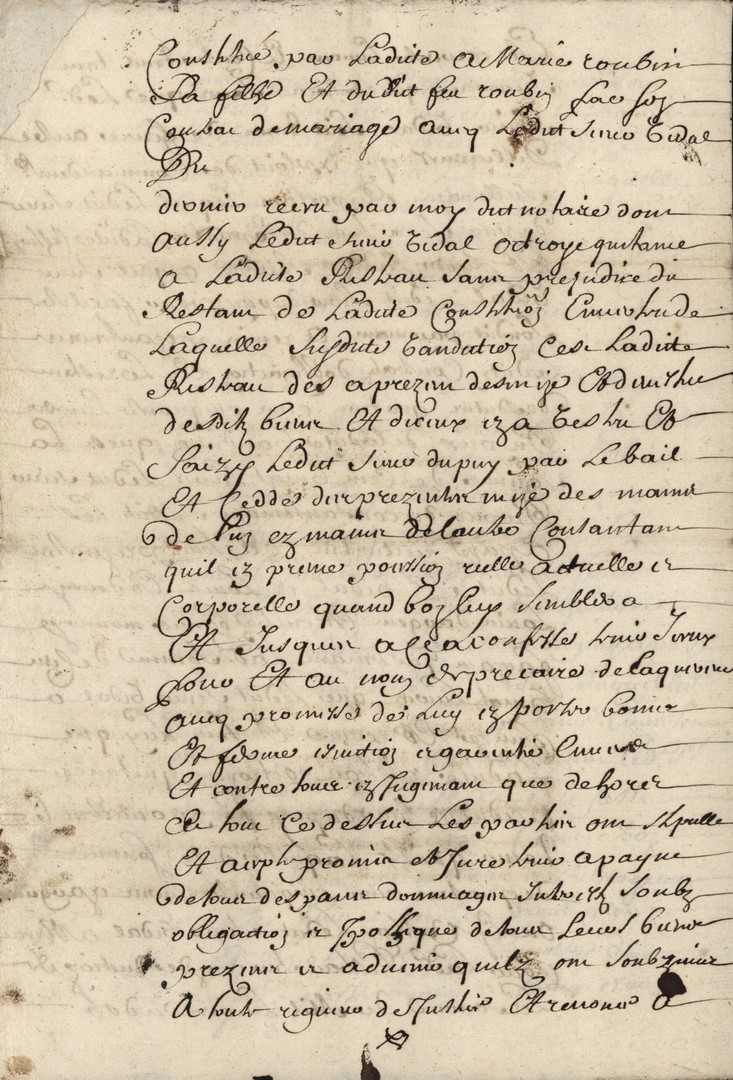 Constitué par Ladite a Marie roubin
Sa fille Et dudit feu roubin Lae son
Contrac de mariage avecq Ledit sieur Vidal
Pre
dernier receu par moy dit notaire dont
aussy Ledit sieur Vidal octroye quitance
a Ladite Risteau sans prejudice du
Restant de Ladite Constitution Ensuitte de
Laquelle susdite vandution Cest Ladite
Risteau des a prezent desmize Et devestue
desditz biens Et diceux en a vestu Et
Saizy Ledit sieur dupuy par Le bail
Et Cedde des prezantes mize des mains
de luy ez mains de lautre Consantant
quil en prenne poission reelle actuelle et
Corporelle quand bon luy semblera
Et Jusques a Confesse tenir Iceux
pour Et au nom de precaire de lacquereur
avecq promesse de Luy en porter bonne
Et ferme eviction et garentie Envers
Et contre tous en Jugemant que dehors
Ce tout Ce dessus Les parties ont stipullé
Et accepté promis et Juré tenir a payne
de tous despans dommages Interestz Soubz
obligation et Ypotheque de tous Leurs biens
prezens et advenir quilz ont Soubzmis
A toute rigueur de Justice Et renoncé a